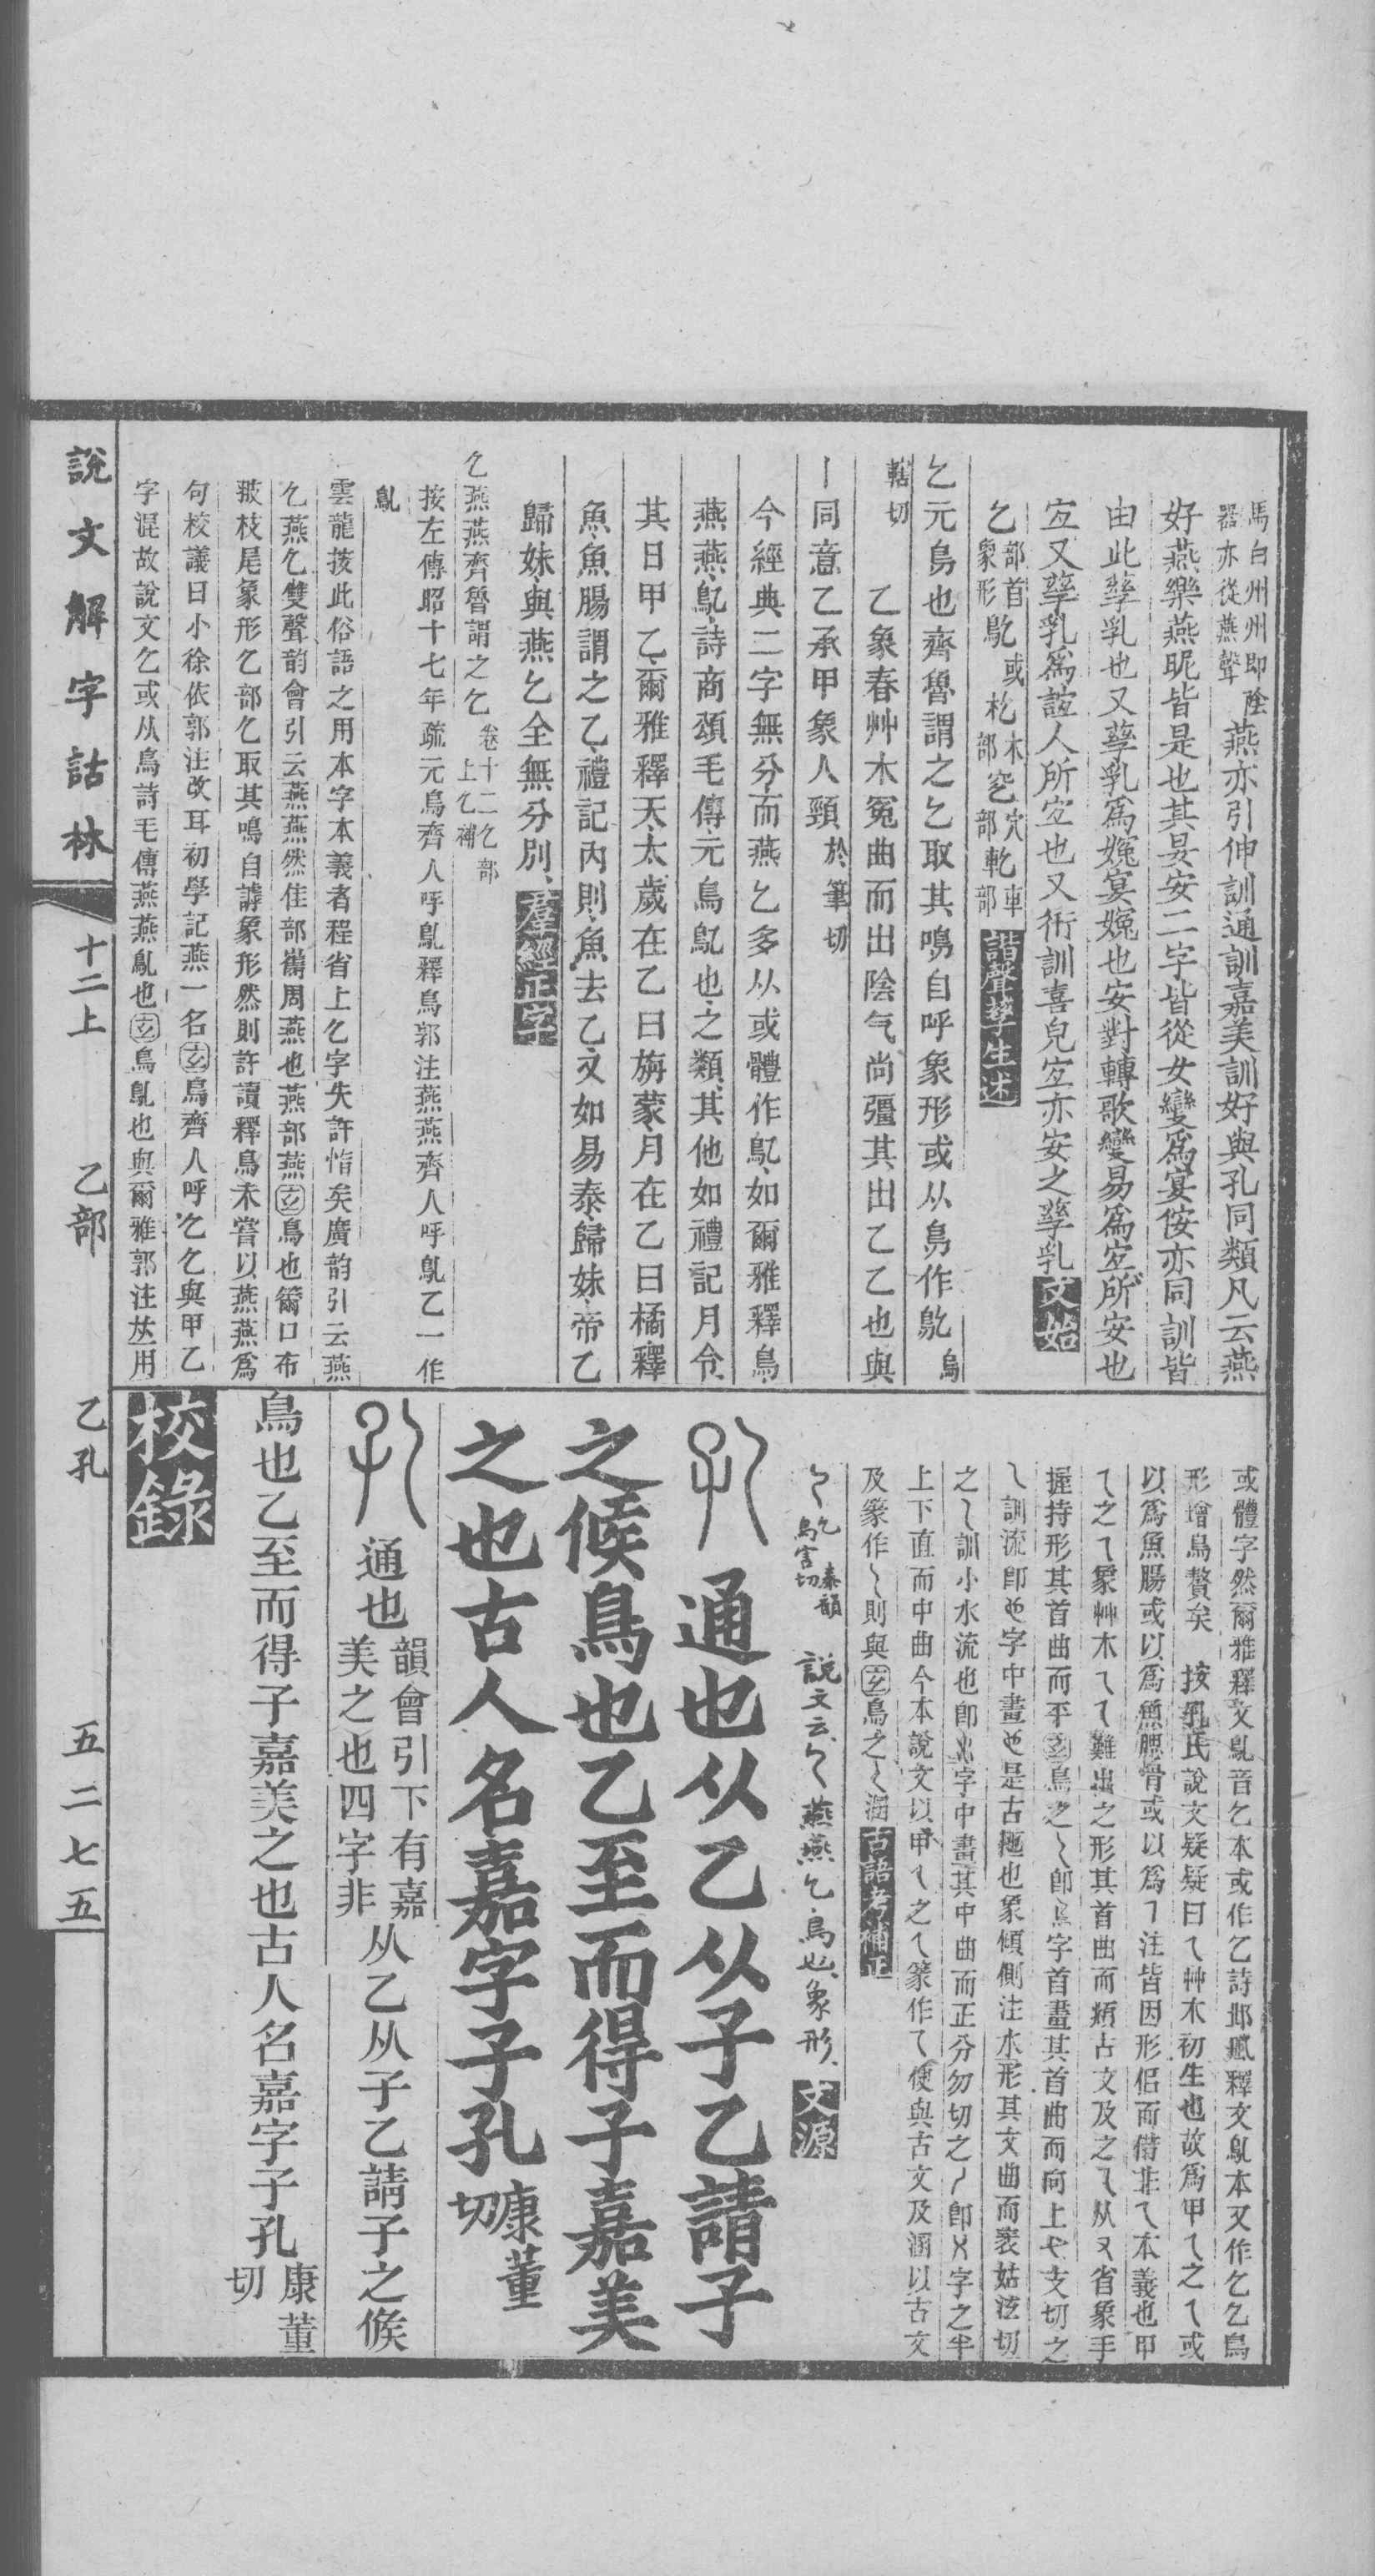 馬白州州即陰
器亦從燕聲
燕亦引伸訓通訓嘉美訓好與孔同類凡云燕
好燕樂燕昵皆是也其妟安二字皆從女變爲宴侒亦同訓皆
由此孳乳也又孳乳爲㝃宴㝃也安對轉歌變易爲㝐所安也
㝐又孳乳爲誼人所㝐也又衎訓喜皃㝐亦安之孳乳文始
乞部首象形鳦或札木部穵穴部軋車部諧聲孳生述
乞元鳥也齊魯謂之乞取其鳴自呼象形或从鳥作鳦烏
轄切
乙象春艸木冤曲而出陰气尚彊其出乙乙也與
丨同意乙承甲象人頸於筆切
今經典二字無分而燕乞多从或體作鳦如爾雅釋鳥
燕燕鳦詩商頌毛傳元鳥鳦也之類其他如禮記月令
其日甲乙爾雅釋天太歲在乙曰旃蒙月在乙曰橘釋
魚魚腸謂之乙禮記內則魚去乙又如易泰歸妹帝乙
歸妹與燕乞全無分別羣經正字
乞燕燕齊魯謂之乞卷十二乞部上乞補
按左傳昭十七年疏元鳥齊人呼鳦釋鳥郭注燕燕齊人呼鳦乙一作
鳦
雲龍按此俗語之用本字本義者程省上乞字失許恉矣廣韵引云燕
乞燕乞雙聲韵會引云燕燕然隹部巂周燕也燕部燕玄鳥也籋口布
翄枝尾象形乞部乞取其鳴自謼象形然則許讀釋鳥未嘗以燕燕爲
句校議曰小徐依郭注改耳初學記燕一名玄鳥齊人呼乞乞與甲乙
字混故說文乞或从鳥詩毛傳燕燕鳦也玄鳥鳦也與爾雅郭注𠀤用
或體字然爾雅釋文鳦音乞本或作乙詩邶風釋文鳦本又作乞乞鳥
形增鳥贅矣 按孔氏說文疑疑曰乁艸木初生也故爲甲乁之乁或
以爲魚腸或以爲魚腮骨或以爲乛注皆因形佀而借非乁本義也甲
乁之乁象艸木乁乁難出之形其首曲而頫古文及之乁从又省象手
握持形其首曲而平玄鳥之乁卽字首畫其首曲而向上弋支切之
乁訓流卽也字中畫也是古匜也象傾側注水形其文曲而衺姑泫切
之乁訓小水流也卽水字中畫其中曲而正分勿切之丿卽乂字之半
上下直而中曲今本說文以甲乁之乁篆作乁便與古文及溷以古文
及篆作乁則與玄鳥之乁溷古語考補正
乞烏害切泰韻 說文云乞燕燕乞鳥也象形文源
孔 通也从乙从子乙請子
之候鳥也乙至而得子嘉美
之也古人名嘉字子孔康董切
孔 通也韻會引下有嘉美之也四字非从乙从子乙請子之候
鳥也乙至而得子嘉美之也古人名嘉字子孔康董切
校錄
說文解字詁林 十二上 乙部 乙孔 五二七五